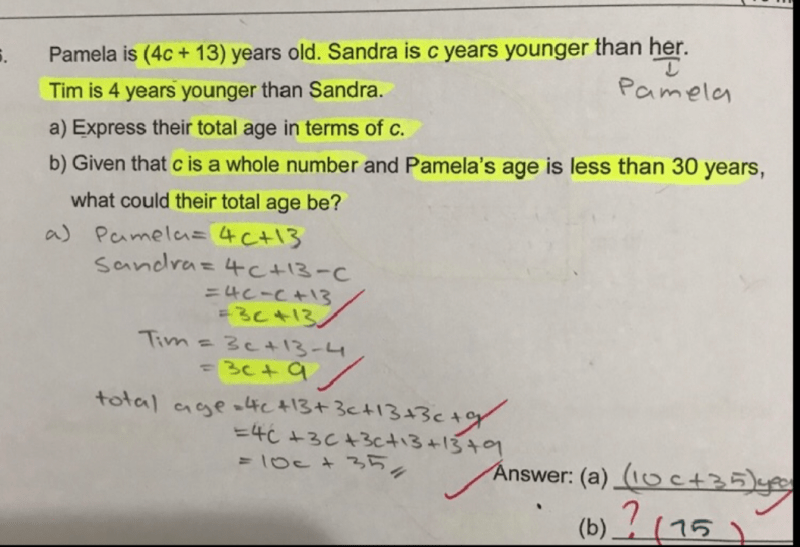 Pamela is (4c + 13) years old. Sandra is c years younger than her.
Pamela
Tim is 4 years younger than Sandra.
a) Express their total age in terms of c.
b) Given that c is a whole number and Pamela's age is less than 30 years,
what could their total age be?
a) Pamela = 4c+13
Sandra = 4c+13-c
= 4c-c+13
= 3c+13
Tim = 3c+13-4
= 3c+9
total age = 4c+13+3c+13+3c+9
= 4c+3c+3c+13+13+9
= 10c + 35
Answer: (a) (10c+35)yea
(b) ? (75)